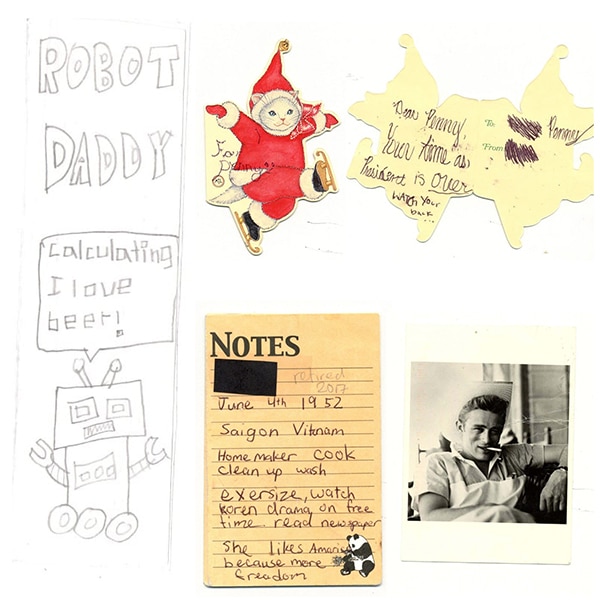 ROBOT
DADDY
Calculating
I love
beer!
Dear Penny,
Your time as
President is over
Watch Your
back...
To:
From
NOTES
retired
2017
June 4th 1952
Saigon Vitnam
Home maker cook
clean up wash
exersize, watch
Koren drama, on free
time read newspaper
She likes Amarica
because more
freadom